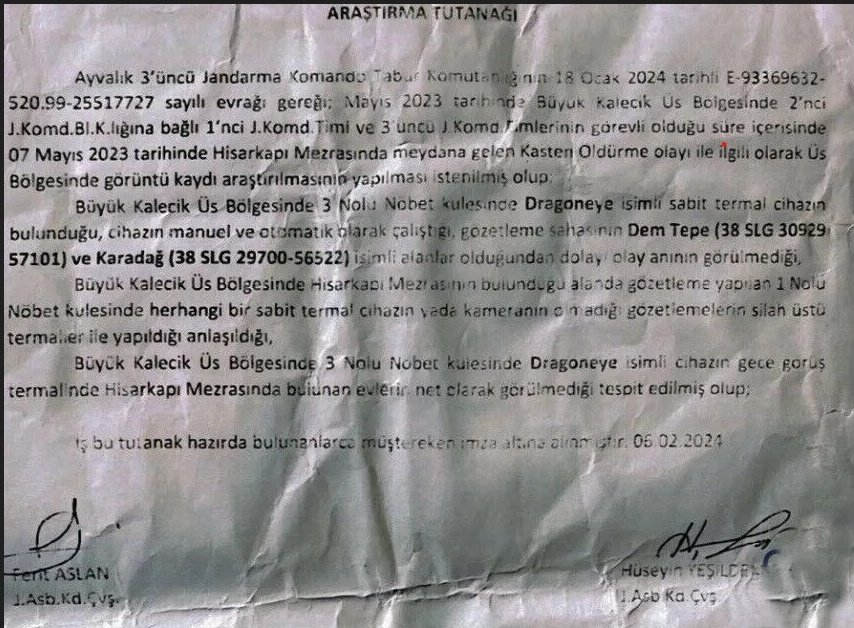 ARAŞTIRMA TUTANAĞI
Ayvalık 3'üncü Jandarma Komando Tabur Komutanlığının 18 Ocak 2024 tarihli E-93369632-
520.99-25517727 sayılı evrağı gereği; Mayıs 2023 tarihinde Büyük Kalecik Üs Bölgesinde 2'nci
J.Komd.Bl.K.lığına bağlı 1'nci J.Komd.Timi ve 3'üncü J.Komd.Timlerinin görevli olduğu süre içerisinde
07 Mayıs 2023 tarihinde Hisarkapı Mezrasında meydana gelen Kasten Öldürme olayı ile ilgili olarak Üs
Bölgesinde görüntü kaydı araştırılmasının yapılması istenilmiş olup;
Büyük Kalecik Üs Bölgesinde 3 Nolu Nöbet kulesinde Dragoneye isimli sabit termal cihazın
bulunduğu, cihazın manuel ve otomatik olarak çalıştığı, gözetleme sahasının Dem Tepe (38 SLG 30929
57101) ve Karadağ (38 SLG 29700-56522) isimli alanlar olduğundan dolayı olay anının görülmediği,
Büyük Kalecik Üs Bölgesinde Hisarkapı Mezrasının bulunduğu alanda gözetleme yapılan 1 Nolu
Nöbet kulesinde herhangi bir sabit termal cihazın yada kameranın olmadığı gözetlemelerin silah üstü
termaller ile yapıldığı anlaşıldığı,
Büyük Kalecik Üs Bölgesinde 3 Nolu Nöbet kulesinde Dragoneye isimli cihazın gece görüş
termalinde Hisarkapı Mezrasında bulunan evlerin net olarak görülmediği tespit edilmiş olup;
İş bu tutanak hazırda bulunanlarca müştereken imza altına alınmıştır. 06.02.2024
Ferit ASLAN
J.Asb.Kd.Çvş.
Hüseyin
J.Asb.Kd.Çvş